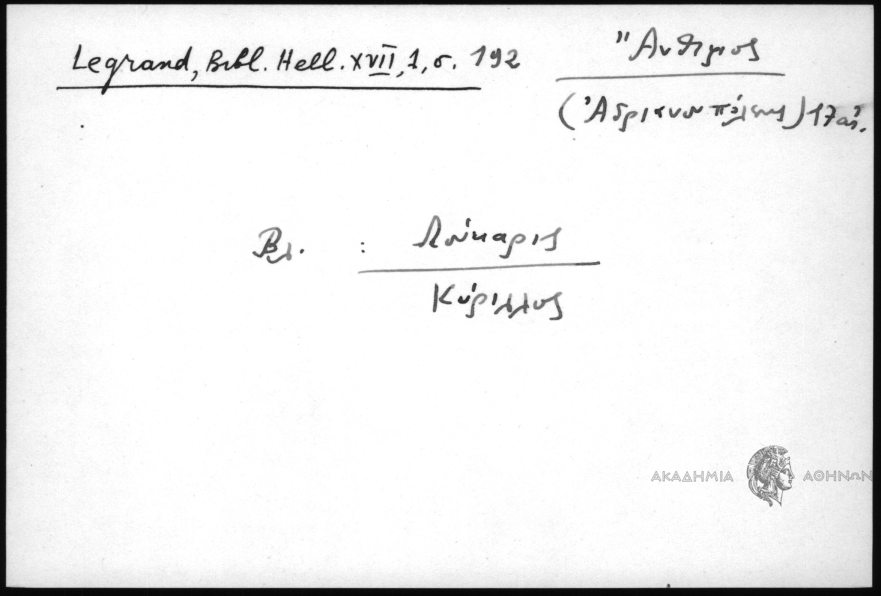 Legrand, Bibl. Hell. XVII, 1, σ. 192
Ἄνθιμος
(Ἀδριανουπόλεως) 17 αἰ.
Βλ. : Λούκαρις
Κύριλλος
ΑΚΑΔΗΜΙΑ ΑΘΗΝΩΝ